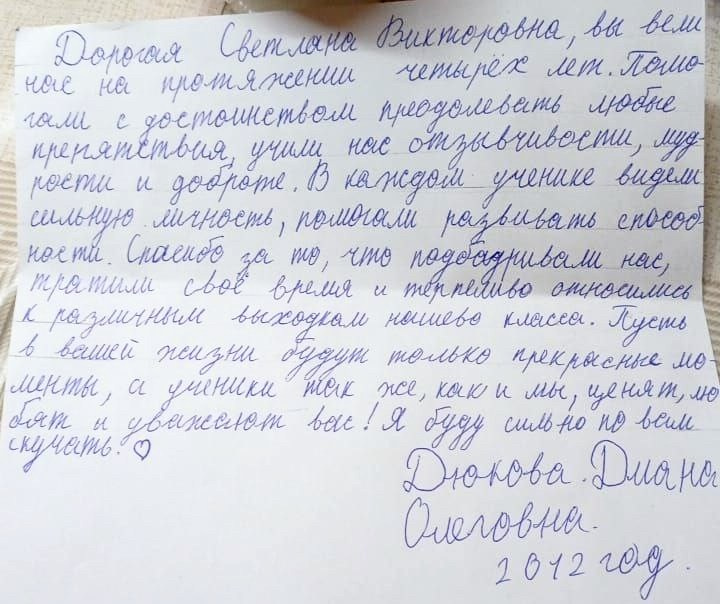 Дорогая Светлана Викторовна, вы вели
нас на протяжении четырёх лет. Помо-
гали с достоинством преодолевать любые
препятствия, учили нас отзывчивости, муд-
рости и доброте. В каждом ученике видели
сильную личность, помогали развивать способ
ности. Спасибо за то, что подбадривали нас,
тратили своё время и терпеливо относились
к различным выходкам нашево класса. Пусть
в вашей жизни будут только прекрасные мо-
менты, а ученики так же, как и мы, ценят, лю
бят и уважают вас! Я буду сильно по вам
скучать. ♡
Дюкова. Диана
Олеговна.
2012 год.